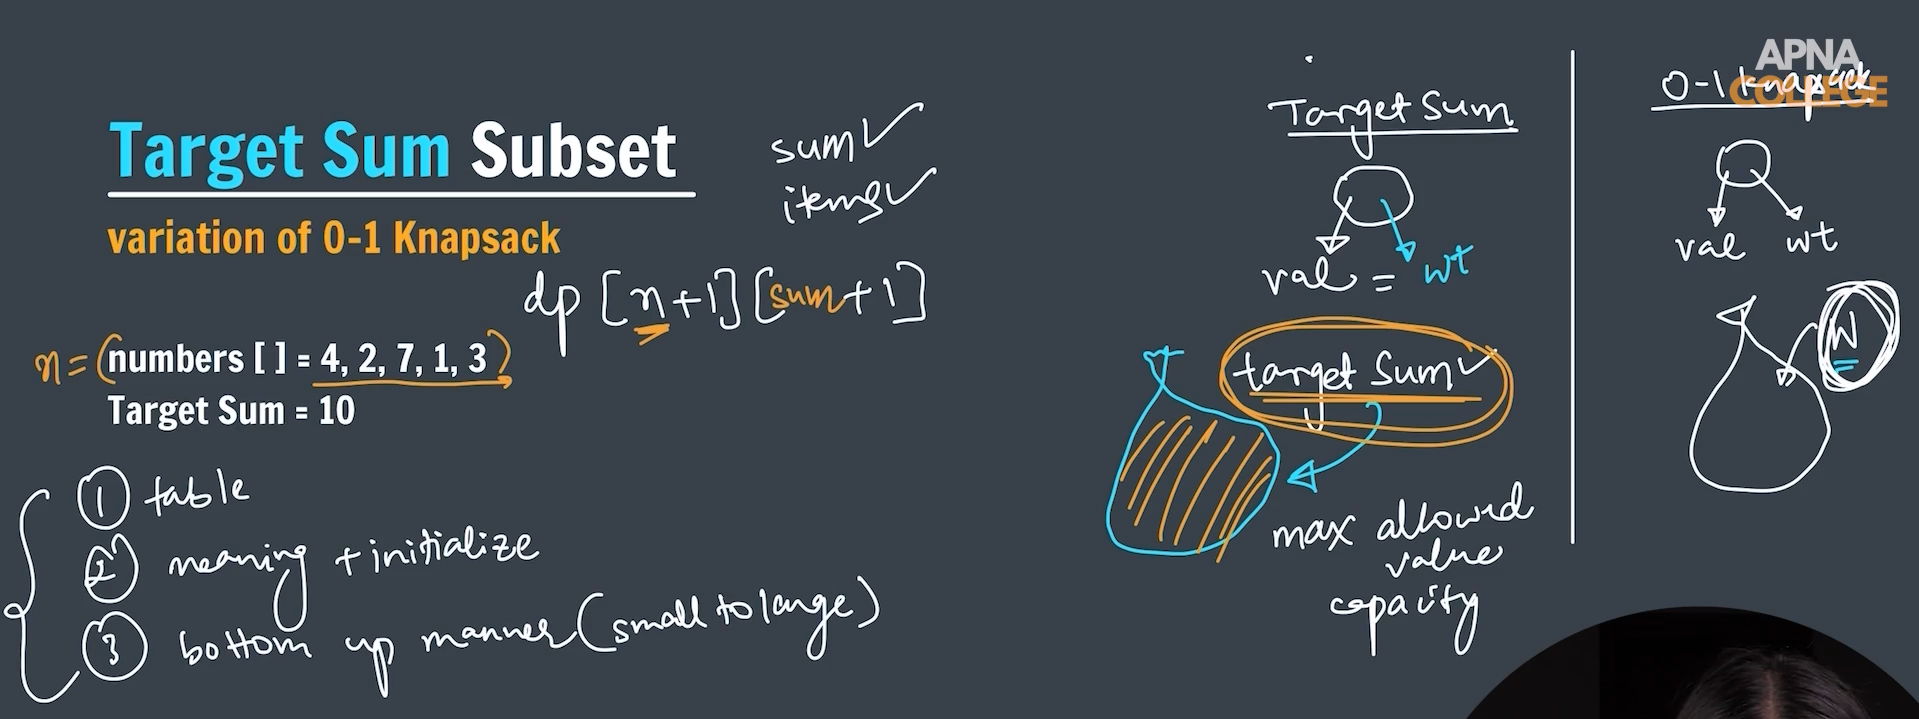 Target Sum Subset
variation of 0-1 Knapsack
sum
items
dp [n+1][sum+1]
n = (numbers [ ] = 4, 2, 7, 1, 3)
Target Sum = 10
① table
② meaning + initialize
③ bottom up manner (small to large)
Target Sum
val = wt
target Sum
max allowed
value
capacity
APNA
COLLEGE
0-1 knapsack
val wt
W